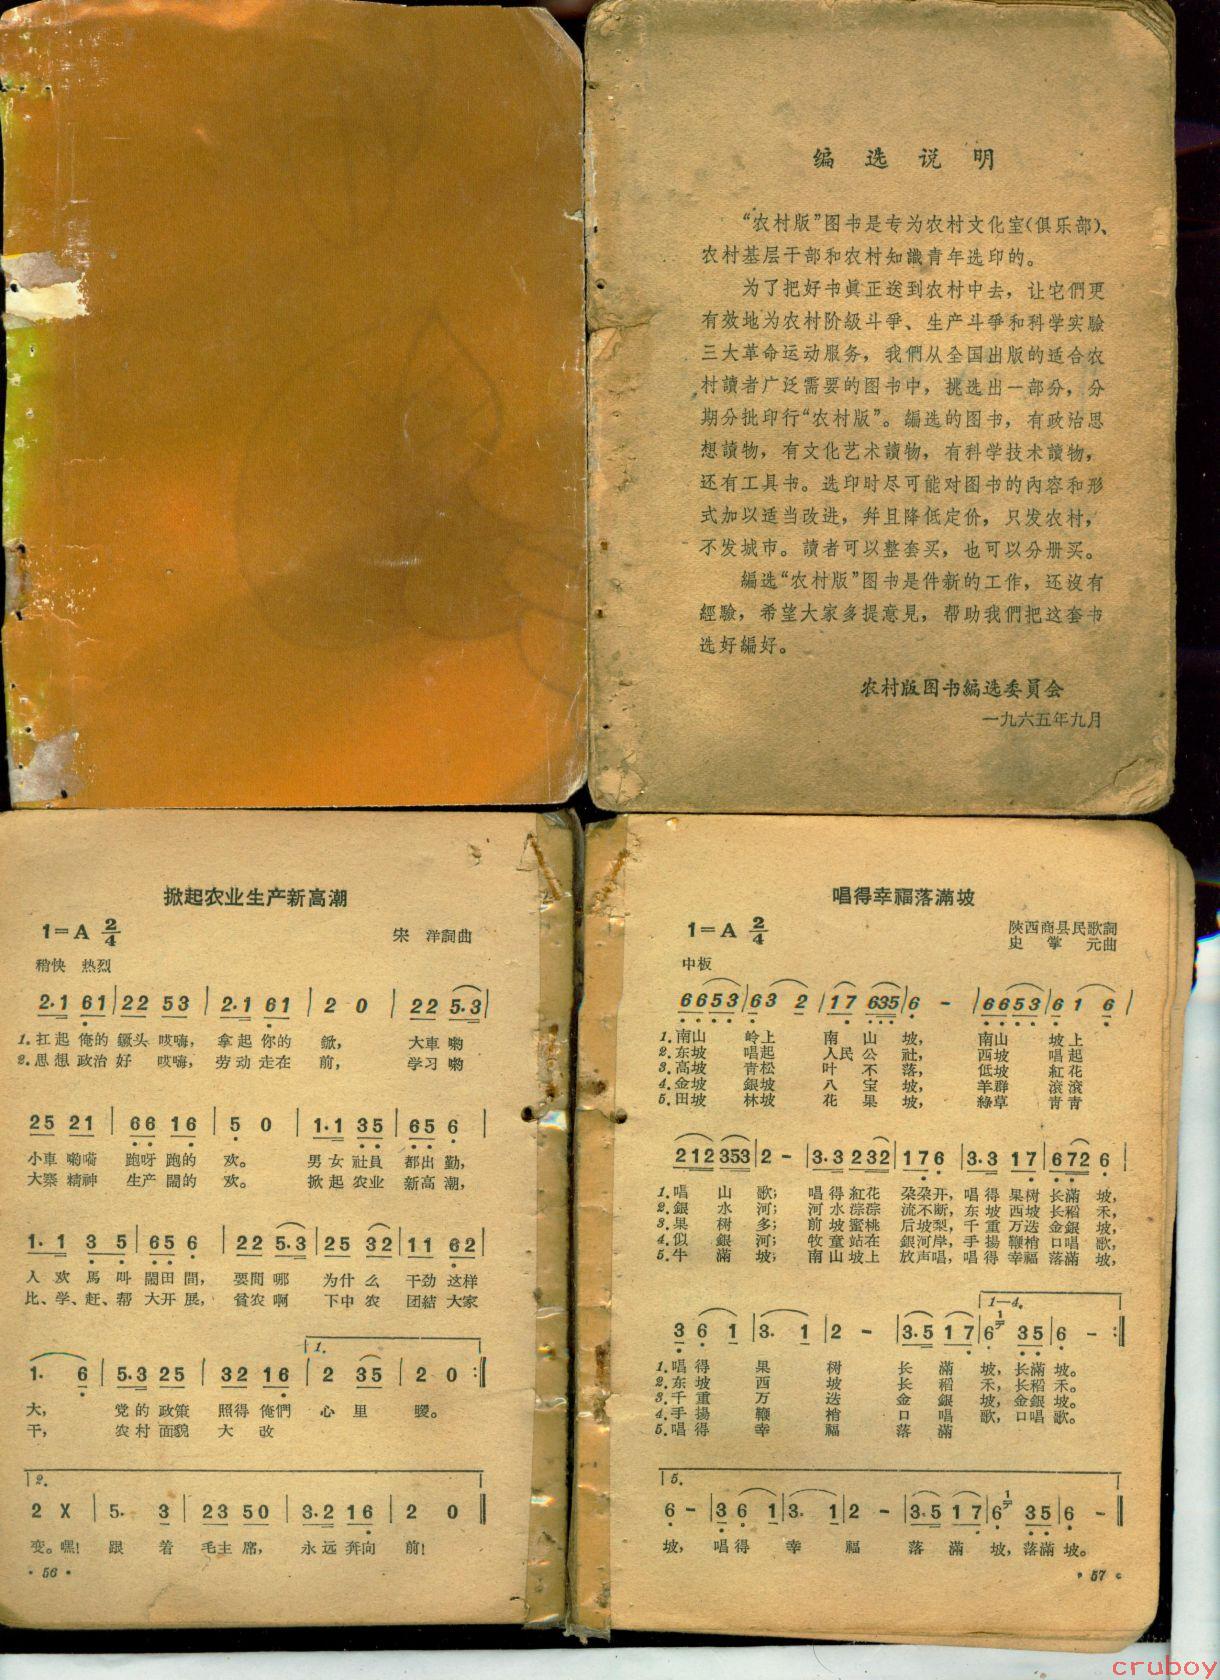 编选说明
“农村版”图书是专为农村文化室(俱乐部)、
农村基层干部和农村知識青年选印的。
为了把好书眞正送到农村中去，让它們更
有效地为农村阶級斗爭、生产斗爭和科学实驗
三大革命运动服务，我們从全国出版的适合农
村讀者广泛需要的图书中，挑选出一部分，分
期分批印行“农村版”。编选的图书，有政治思
想讀物，有文化艺术讀物，有科学技术讀物，
还有工具书。选印时尽可能对图书的內容和形
式加以适当改进，幷且降低定价，只发农村，
不发城市。讀者可以整套买，也可以分册买。
編选“农村版”图书是件新的工作，还沒有
經驗，希望大家多提意見，帮助我們把这套书
选好編好。
农村版图书編选委員会
一九六五年九月
掀起农业生产新高潮
1=A 2/4
宋 洋詞曲
稍快 热烈
2·1 61 | 22 53 | 2·1 61 | 2 0 | 22 5·3 |
1.扛起 俺的 鐝头 哎嗨， 拿起 你的 鍁， 大車 喲
2.思想 政治 好 哎嗨， 劳动 走在 前， 学习 喲
25 21 | 66 16 | 5 0 | 1·1 35 | 65 6 |
小車 喲嗬 跑呀 跑的 欢。 男女 社員 都出 勤，
大寨 精神 生产 鬧的 欢。 掀起 农业 新高 潮，
1·1 3 5 | 65 6 | 22 5·3 | 25 32 | 11 62 |
人欢 馬 叫 鬧田 間， 要問 哪 为什 么 干劲 这样
比、学、赶、帮 大开 展， 貧农 啊 下中 农 团結 大家
1· 6 | 5·3 25 | 32 16 | 1. 2 35 | 2 0 :‖
大， 党的 政策 照得 俺們 心里 暖。
干， 农村 面貌 大 改
2.
2 X | 5· 3 | 23 50 | 3·2 16 | 2 0 ‖
变。嘿！ 跟 着 毛主 席， 永远 奔向 前！
·56·
唱得幸福落滿坡
1=A 2/4
陝西商县民歌詞
史 掌 元曲
中板
6653 | 63 2 | 17 635 | 6 - | 6653 | 6 1 6 |
1.南山 岭上 南 山 坡， 南山 坡上
2.东坡 唱起 人民 公 社， 西坡 唱起
3.高坡 青松 叶 不 落， 低坡 紅花
4.金坡 銀坡 八 宝 坡， 羊群 滾滾
5.田坡 林坡 花 果 坡， 綠草 青青
212 353 | 2 - | 3·3 232 | 17 6 | 3·3 17 | 672 6 |
1.唱 山 歌； 唱得 紅花 朶朶开， 唱得 果树 长滿 坡，
2.銀 水 河； 河水 淙淙 流不断， 东坡 西坡 长稻 禾，
3.果 树 多； 前坡 蜜桃 后坡梨， 千重 万迭 金銀 坡，
4.似 銀 河； 牧童 站在 銀河岸， 手揚 鞭梢 口唱 歌，
5.牛 滿 坡； 南山 坡上 放声唱， 唱得 幸福 落滿 坡，
1—4.
3 6 1 | 3· 1 | 2 - | 3·5 17 | 6 35 | 6 - :‖
1.唱得 果 树 长 滿 坡，长滿 坡。
2.东坡 西 坡 长 稻 禾，长稻 禾。
3.千重 万 迭 金 銀 坡，金銀 坡。
4.手揚 鞭 梢 口 唱 歌，口唱 歌。
5.唱得 幸 福 落 滿
5.
6 - | 3 6 1 | 3· 1 | 2 - | 3·5 17 | 6 35 | 6 - ‖
坡， 唱得 幸 福 落 滿 坡，落滿 坡。
·57·
cruboy